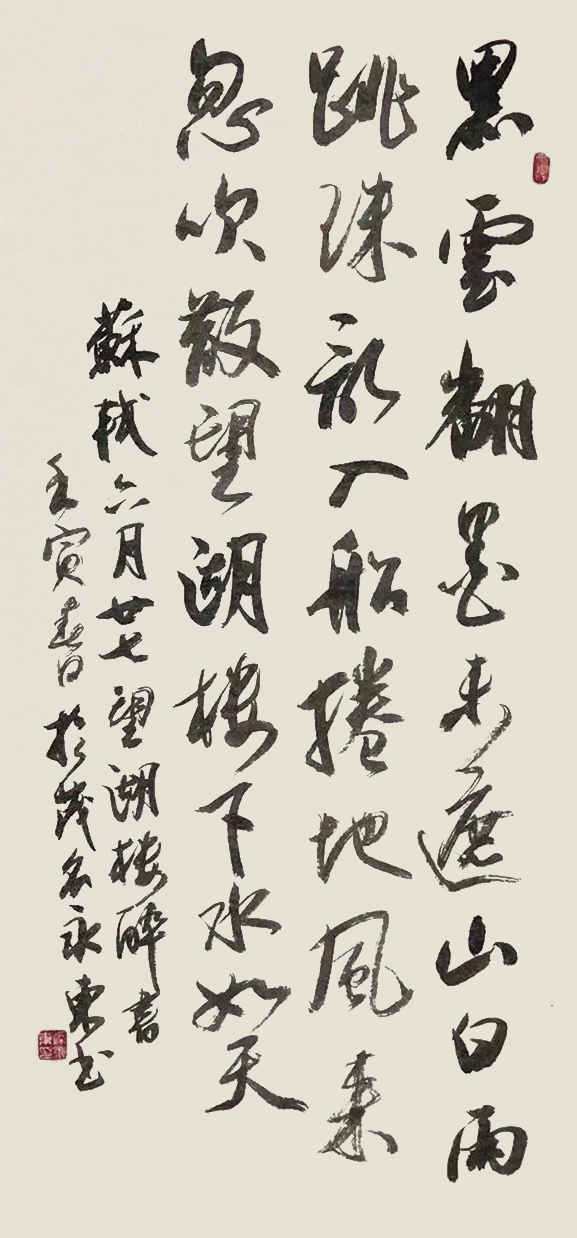 黑雲翻墨未遮山白雨
跳珠亂入船捲地風来
忽吹散望湖樓下水如天
蘇軾六月廿七望湖樓醉書
壬寅春日於茂名永東书